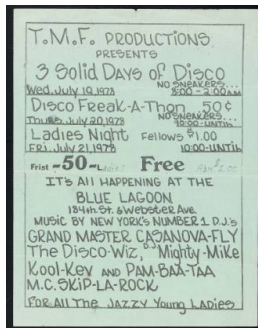 T.M.F. PRODUCTIONS
PRESENTS
3 Solid Days of Disco
NO SNEAKERS...
Wed. July 19, 1978 8:00 - 2:00AM
Disco Freak-A-Thon 50¢
NO SNEAKERS...
Thurs. July 20, 1978 10:00-UNTIL
Ladies Night Fellows $1.00
FRI. July 21, 1978 10:00-UNTIL
Frist -50- Ladies Free
IT'S All HAPPENING AT THE
BLUE LAGOON
184th St. & Webster Ave.
MUSIC BY NEW YORK'S NUMBER 1 D.J.'s
GRAND MASTER CASANOVA-FLY
The Disco-Wiz, "Mighty-Mike
Kool-Kev AND PAM-BAX-TAA
M.C. SKIP-LA-ROCK
FOR All The JAZZY Young LADIES